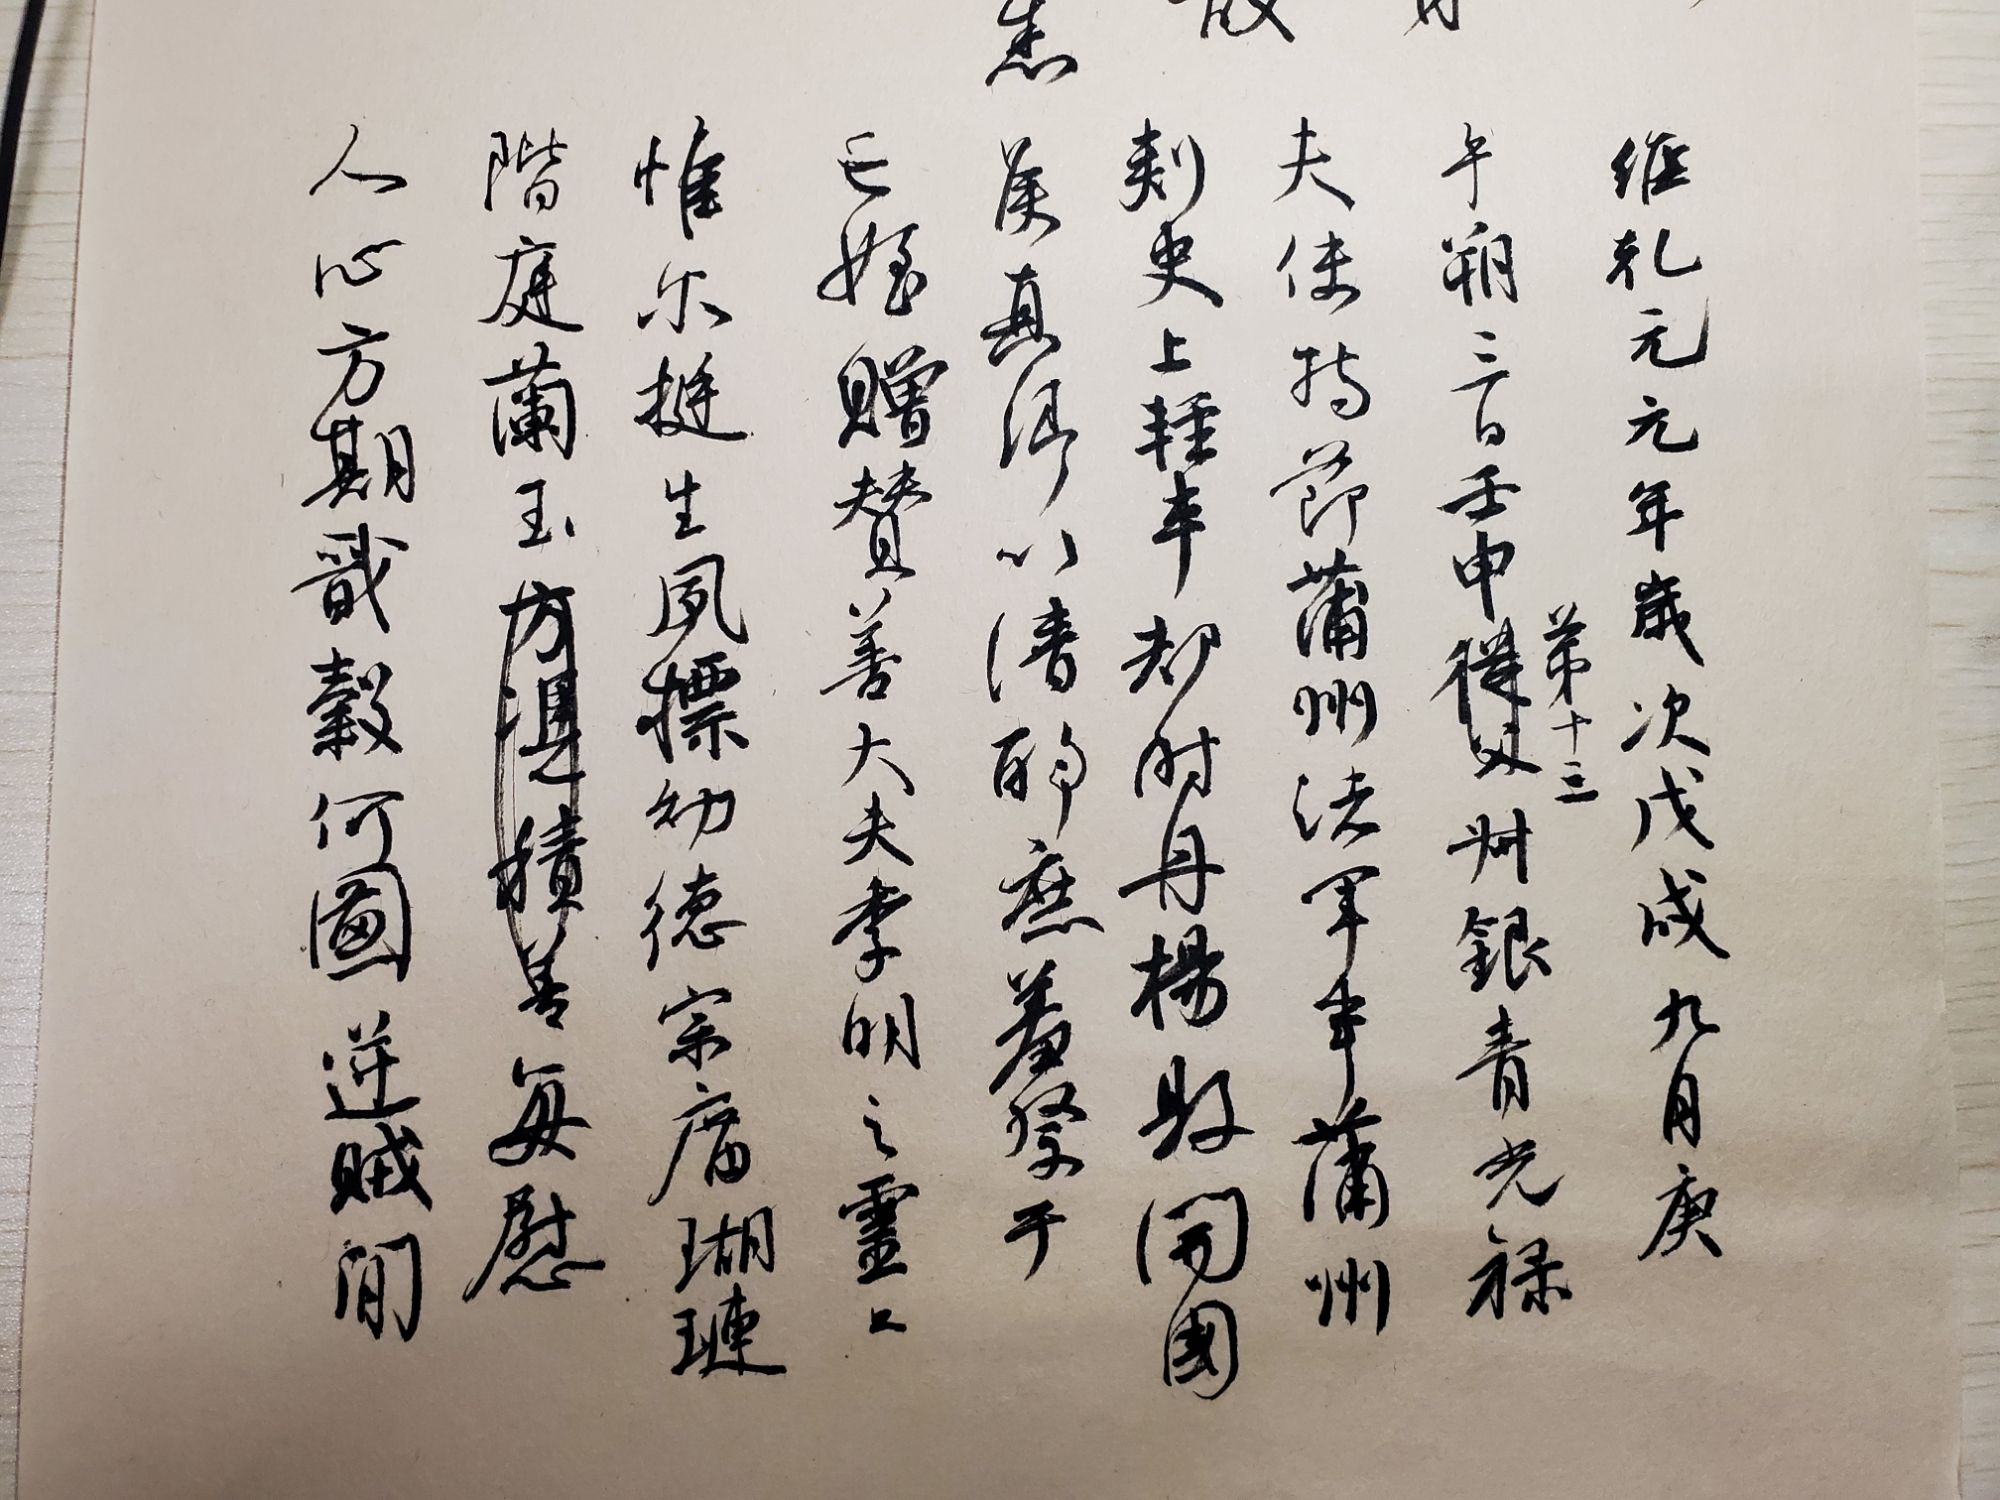 維乾元元年歲次戊戌九月庚
午朔三日壬申第十三從父叔銀青光祿
夫使持節蒲州諸軍事蒲州
刺史上輕車都尉丹楊縣開國
侯真卿以清酌庶羞祭于
亡姪贈贊善大夫季明之靈曰
惟尔挺生夙標幼德宗廟瑚璉
階庭蘭玉方憑積善每慰
人心方期戩穀何圖逆賊閒